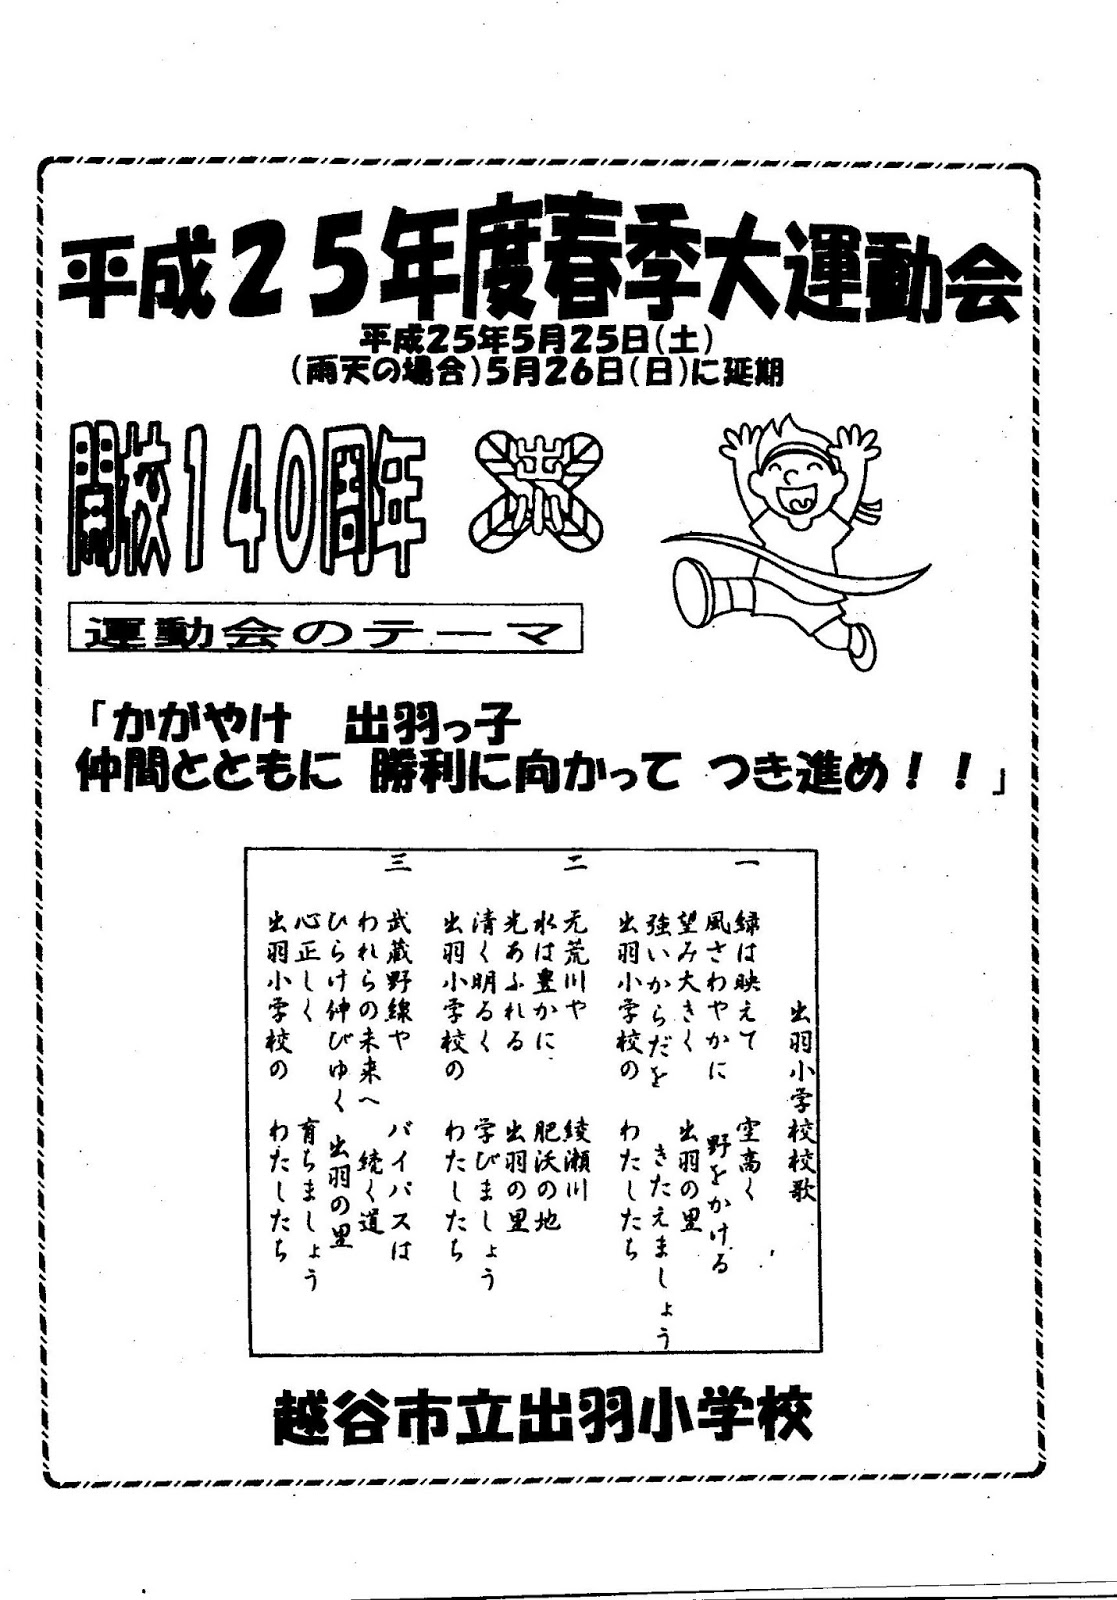 平成25年度春季大運動会
平成25年5月25日(土)
(雨天の場合)5月26日(日)に延期
開校140周年
出小
運動会のテーマ
「かがやけ　出羽っ子
仲間とともに 勝利に向かって つき進め!!」
出羽小学校校歌
一
緑は映えて　空高く
風さわやかに　野をかける
望み大きく　出羽の里
強いからだを　きたえましょう
出羽小学校の　わたしたち
二
元荒川や　綾瀬川
水は豊かに　肥沃の地
光あふれる　出羽の里
清く明るく　学びましょう
出羽小学校の　わたしたち
三
武蔵野線や　バイパスは
われらの未来へ　続く道
ひらけ伸びゆく　出羽の里
心正しく　育ちましょう
出羽小学校の　わたしたち
越谷市立出羽小学校